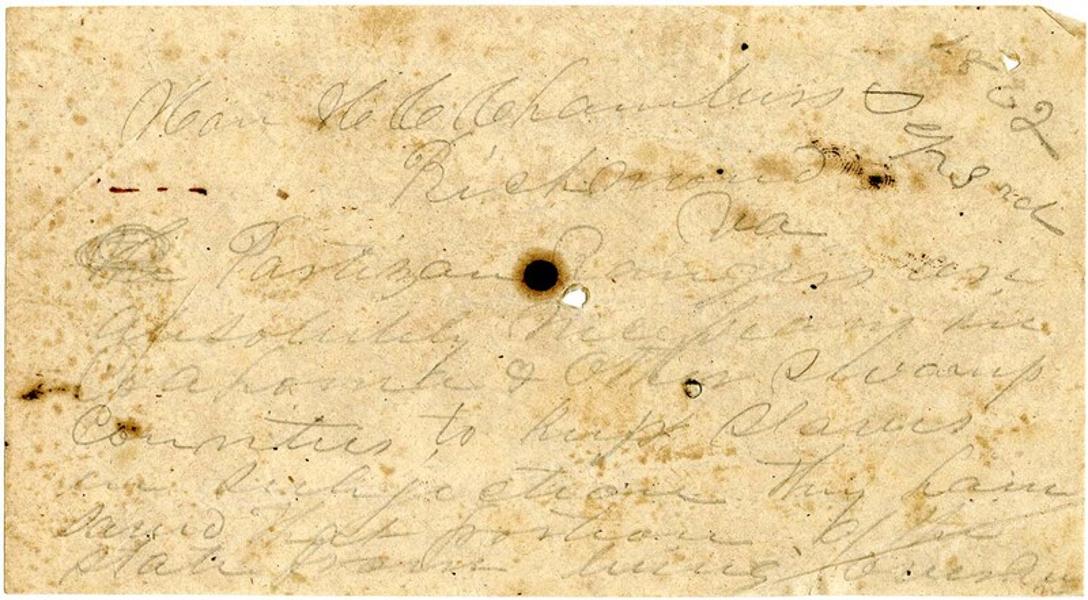 1862
Hon H C Chambers Dec 23rd
Richmond
Va
The Partizan Rangers are
absolutely necessary in
Coahoma & Other Swamp
Counties to keep Slaves
in subjection They have
saved that portion of the
state from being overrun